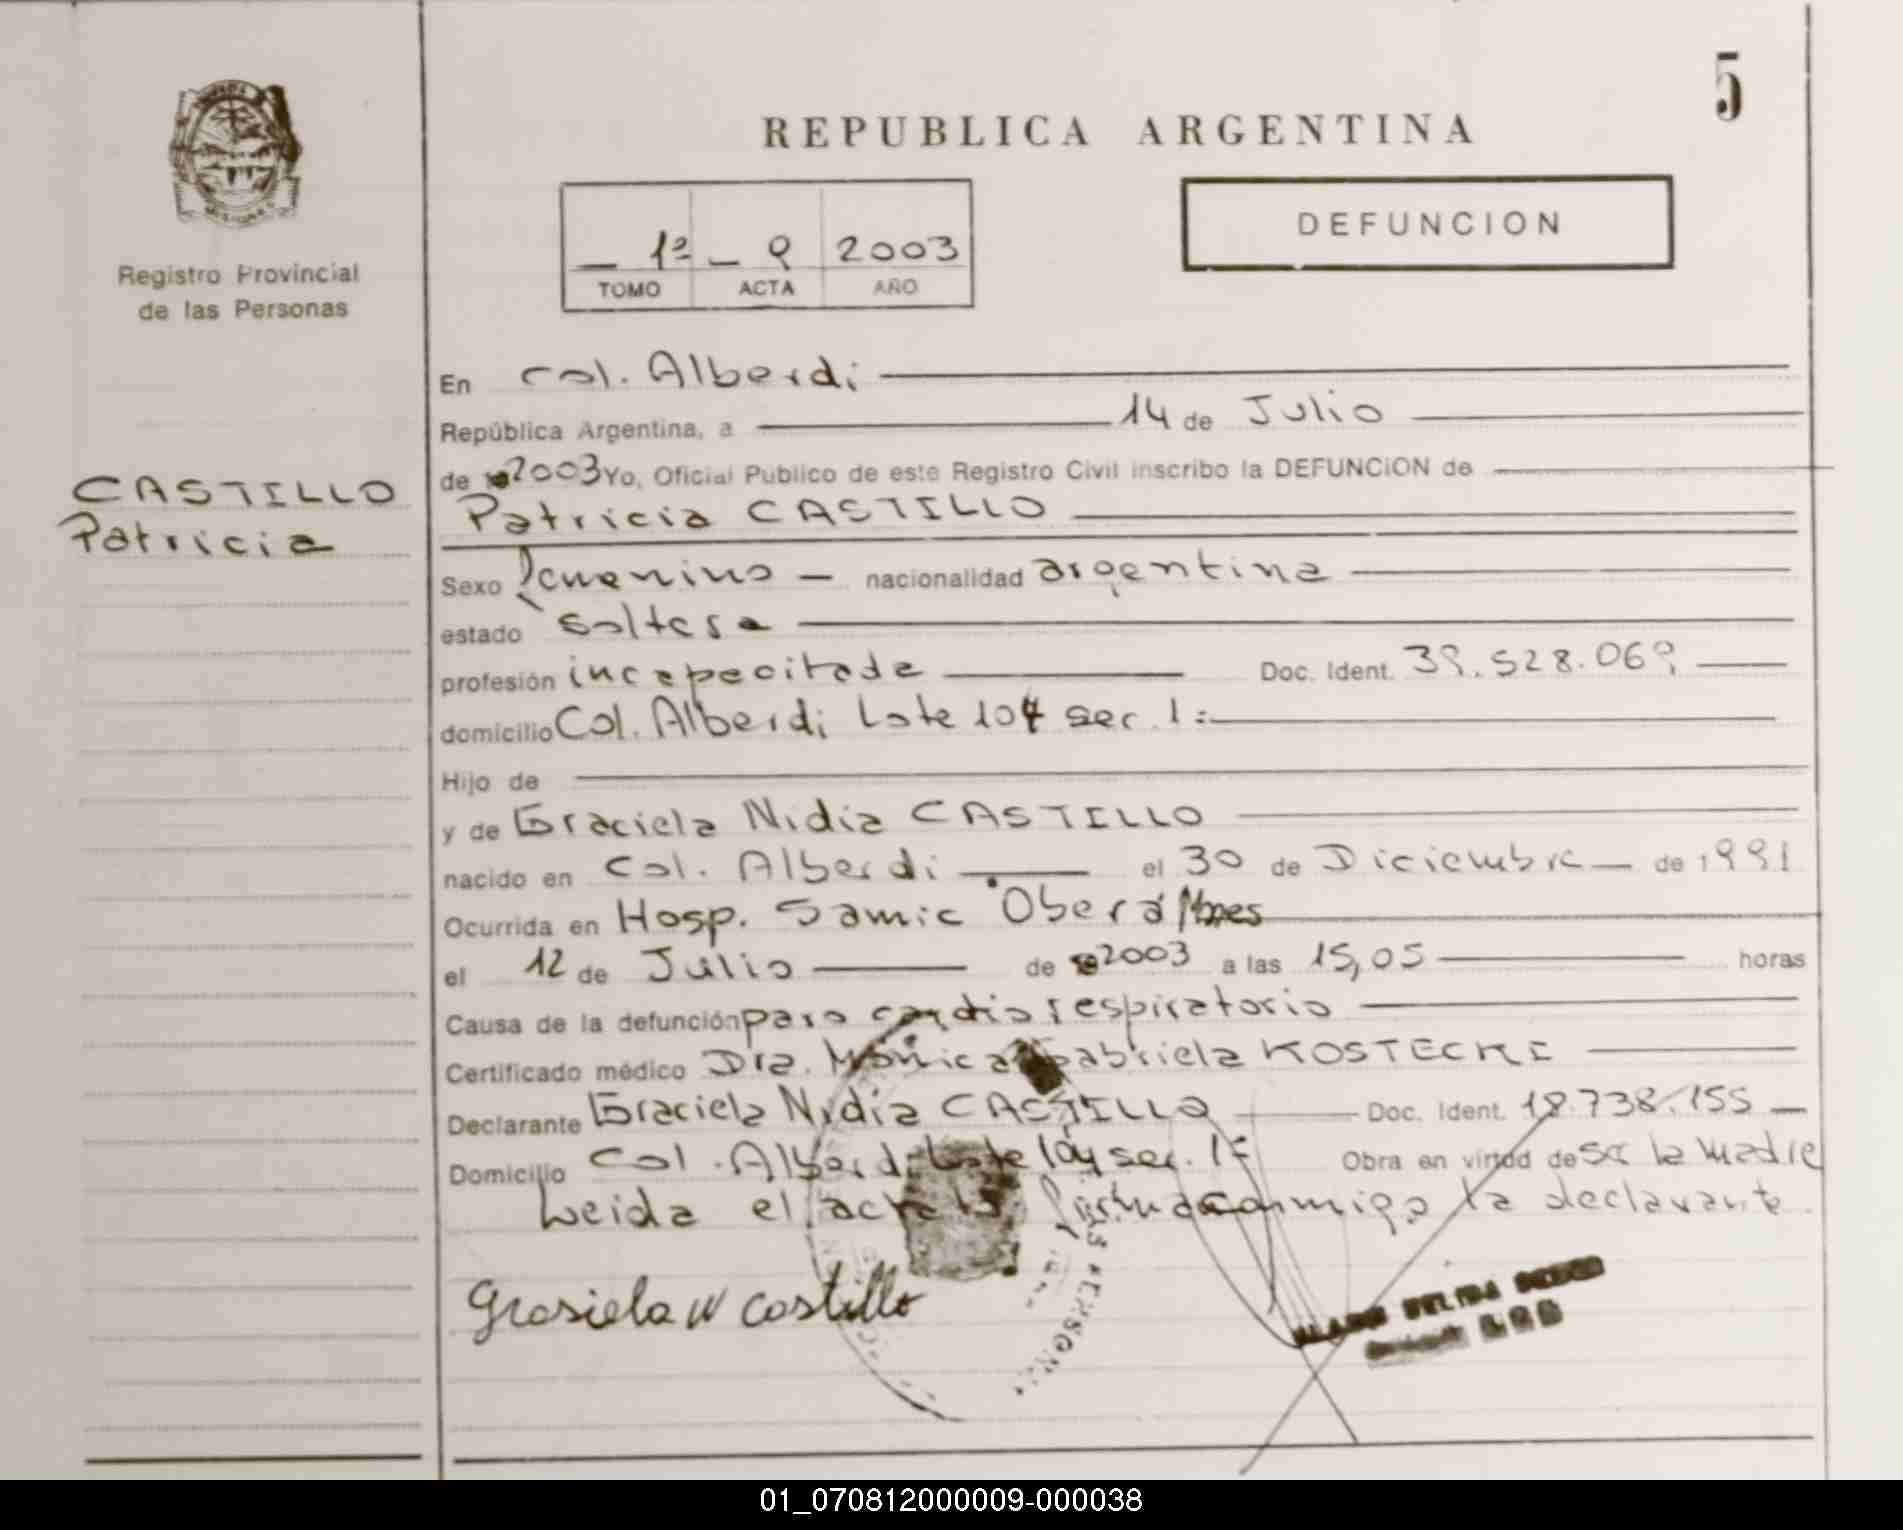 5
REPUBLICA ARGENTINA
1ª 9 2003
TOMO ACTA AÑO
DEFUNCION
Registro Provincial
de las Personas
CASTILLO
Patricia
En Col. Alberdi
República Argentina, a 14 de Julio
de 2003 Yo, Oficial Publico de este Registro Civil inscribo la DEFUNCION de
Patricia CASTILLO
Sexo femenino nacionalidad argentina
estado soltera
profesión incapacitada Doc. Ident. 39.528.069
domicilio Col. Alberdi Lote 104 sec. 1ª
Hijo de
y de Graciela Nidia CASTILLO
nacido en Col. Alberdi el 30 de Diciembre de 1991
Ocurrida en Hosp. Samic Oberá Mnes
el 12 de Julio de 2003 a las 15,05 horas
Causa de la defunción paro cardio respiratorio
Certificado médico Dra. Mónica Gabriela KOSTECKI
Declarante Graciela Nidia CASTILLO Doc. Ident. 18.738.155
Domicilio Col. Alberdi Lote 104 sec. 1ª Obra en virtud de ser la madre
Leida el acta la firma conmigo la declarante
Grasiela N Castillo
01_070812000009-000038